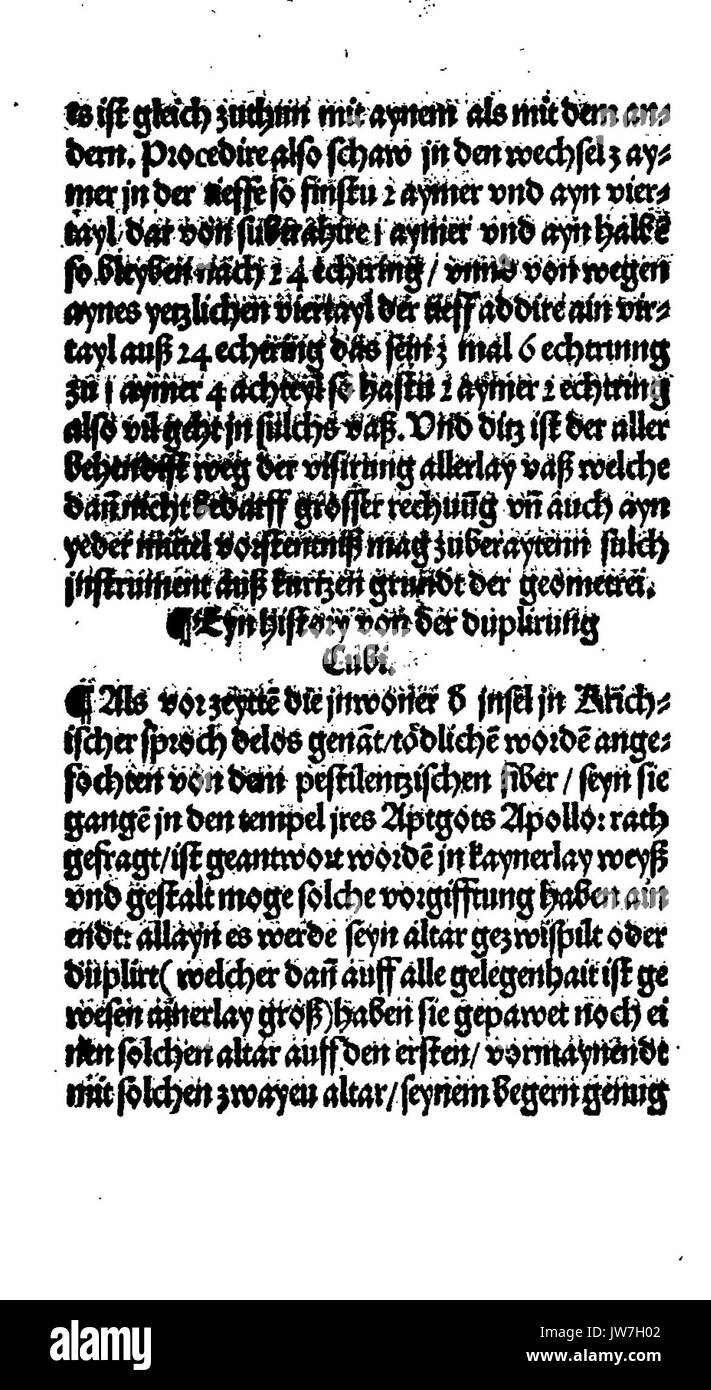 es ist gleich zuthun mit aynem als mit dem an⸗
dern. Procedire also schaw jn den wechsel 3 ay⸗
mer jn der tieffe so finstu 2 aymer vnd ayn vier⸗
tayl dar von subtrahire 1 aymer vnd ayn halbe
so bleyben nach 24 echtring / vnnd von wegen
aynes yetzlichen viertayl der tieff addire ain vir⸗
tayl auß 24 echtring das sein 3 mal 6 echtrinng
zu 1 aymer 4 achteyl so hastu 2 aymer 2 echtring
also vil geht jn sulchs vaß. Vnd ditz ist der aller
behendist weg der visirung allerlay vaß welche
dañ nicht bedarff grosser rechnũg vñ auch ayn
yeder mittel vorstentniß mag zuberaytenn sulch
jnstrument auß kurtzen grundt der geometrei.
¶ Eyn history von der duplirung
Cubi.
¶ Als vor zeyttẽ die jnwoner d̕ insel jn Krich⸗
ischer sproch delos genãt/tödlichẽ wordẽ ange⸗
fochten von dem pestilentzischen fiber / seyn sie
gangẽ jn den tempel jres Aptgots Apollo: rath
gefragt/ist geantwort wordẽ jn kaynerlay weyß
vnd gestalt moge solche vorgifftung haben ain
endt: allayn es werde seyn altar gezwispilt oder
duplirt( welcher dañ auff alle gelegenhait ist ge
wesen ainerlay groß)haben sie gepawet noch ei
nen solchen altar auff den ersten/ vormaynendt
mit solchen zwayen altar/ seynem begern genug
alamy
Image ID: JW7H02
www.alamy.com